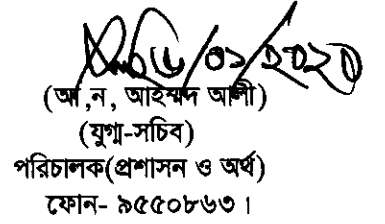 ০১/২০২০
(আ,ন, আহম্মদ আলী)
(যুগ্ম-সচিব)
পরিচালক(প্রশাসন ও অর্থ)
ফোন- ৯৫৫০৮৬৩।